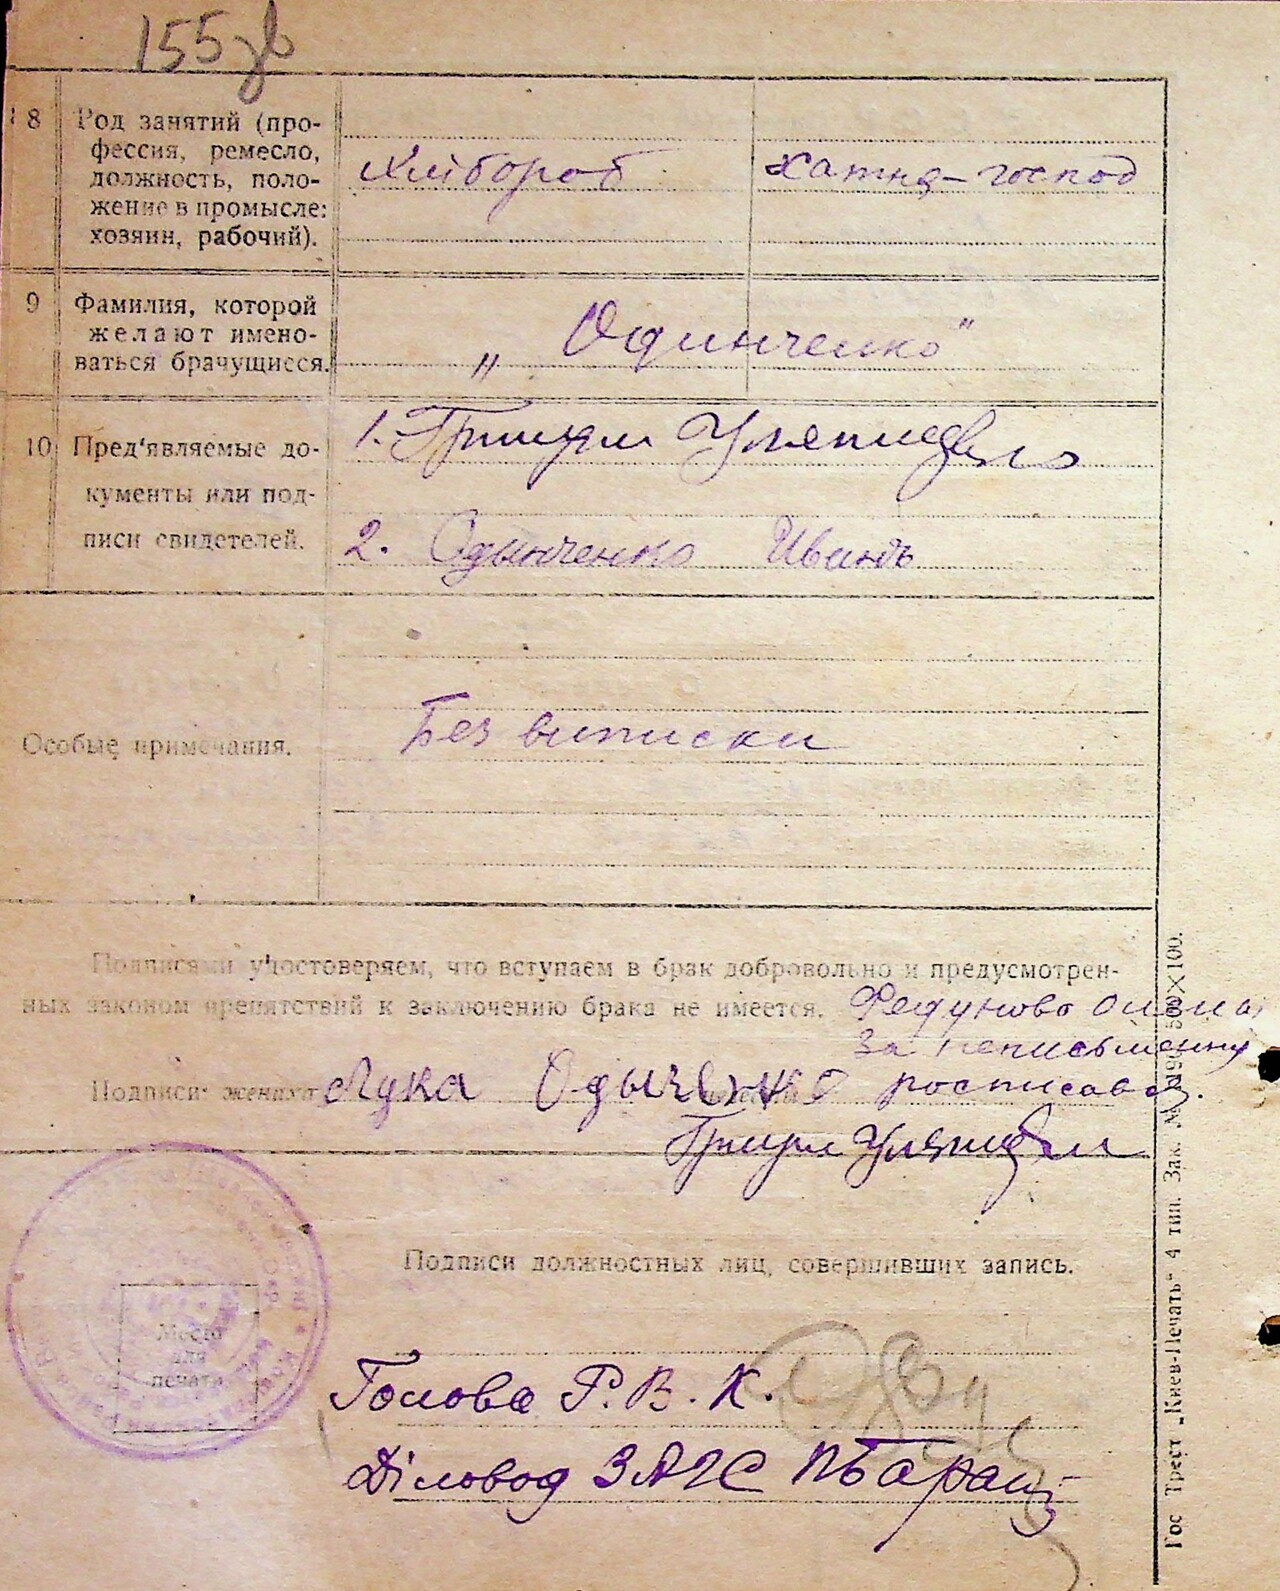 155 зв
8 Род занятий (про-
фессия, ремесло,
должность, поло-
жение в промысле:
хозяин, рабочий).
Хлібороб
хатня-господ
9 Фамилия, которой
желают имено-
ваться брачущиеся.
„Одинченко"
10 Пред'являемые до-
кументы или под-
писи свидетелей.
1.
2. Одынченко Иванъ
Особые примечания.
Без виписки
Подписями удостоверяем, что вступаем в брак добровольно и предусмотрен-
ных законом препятствий к заключению брака не имеется.
За неписьменну
Подписи: жениха Лука Одынченко росписавсь.
Место
для
печати
Подписи должностных лиц, совершивших запись.
Голова Р.В.К.
Діловод ЗАГС
Гос Трест „Киев-Печать" 4 тип. Зак. №